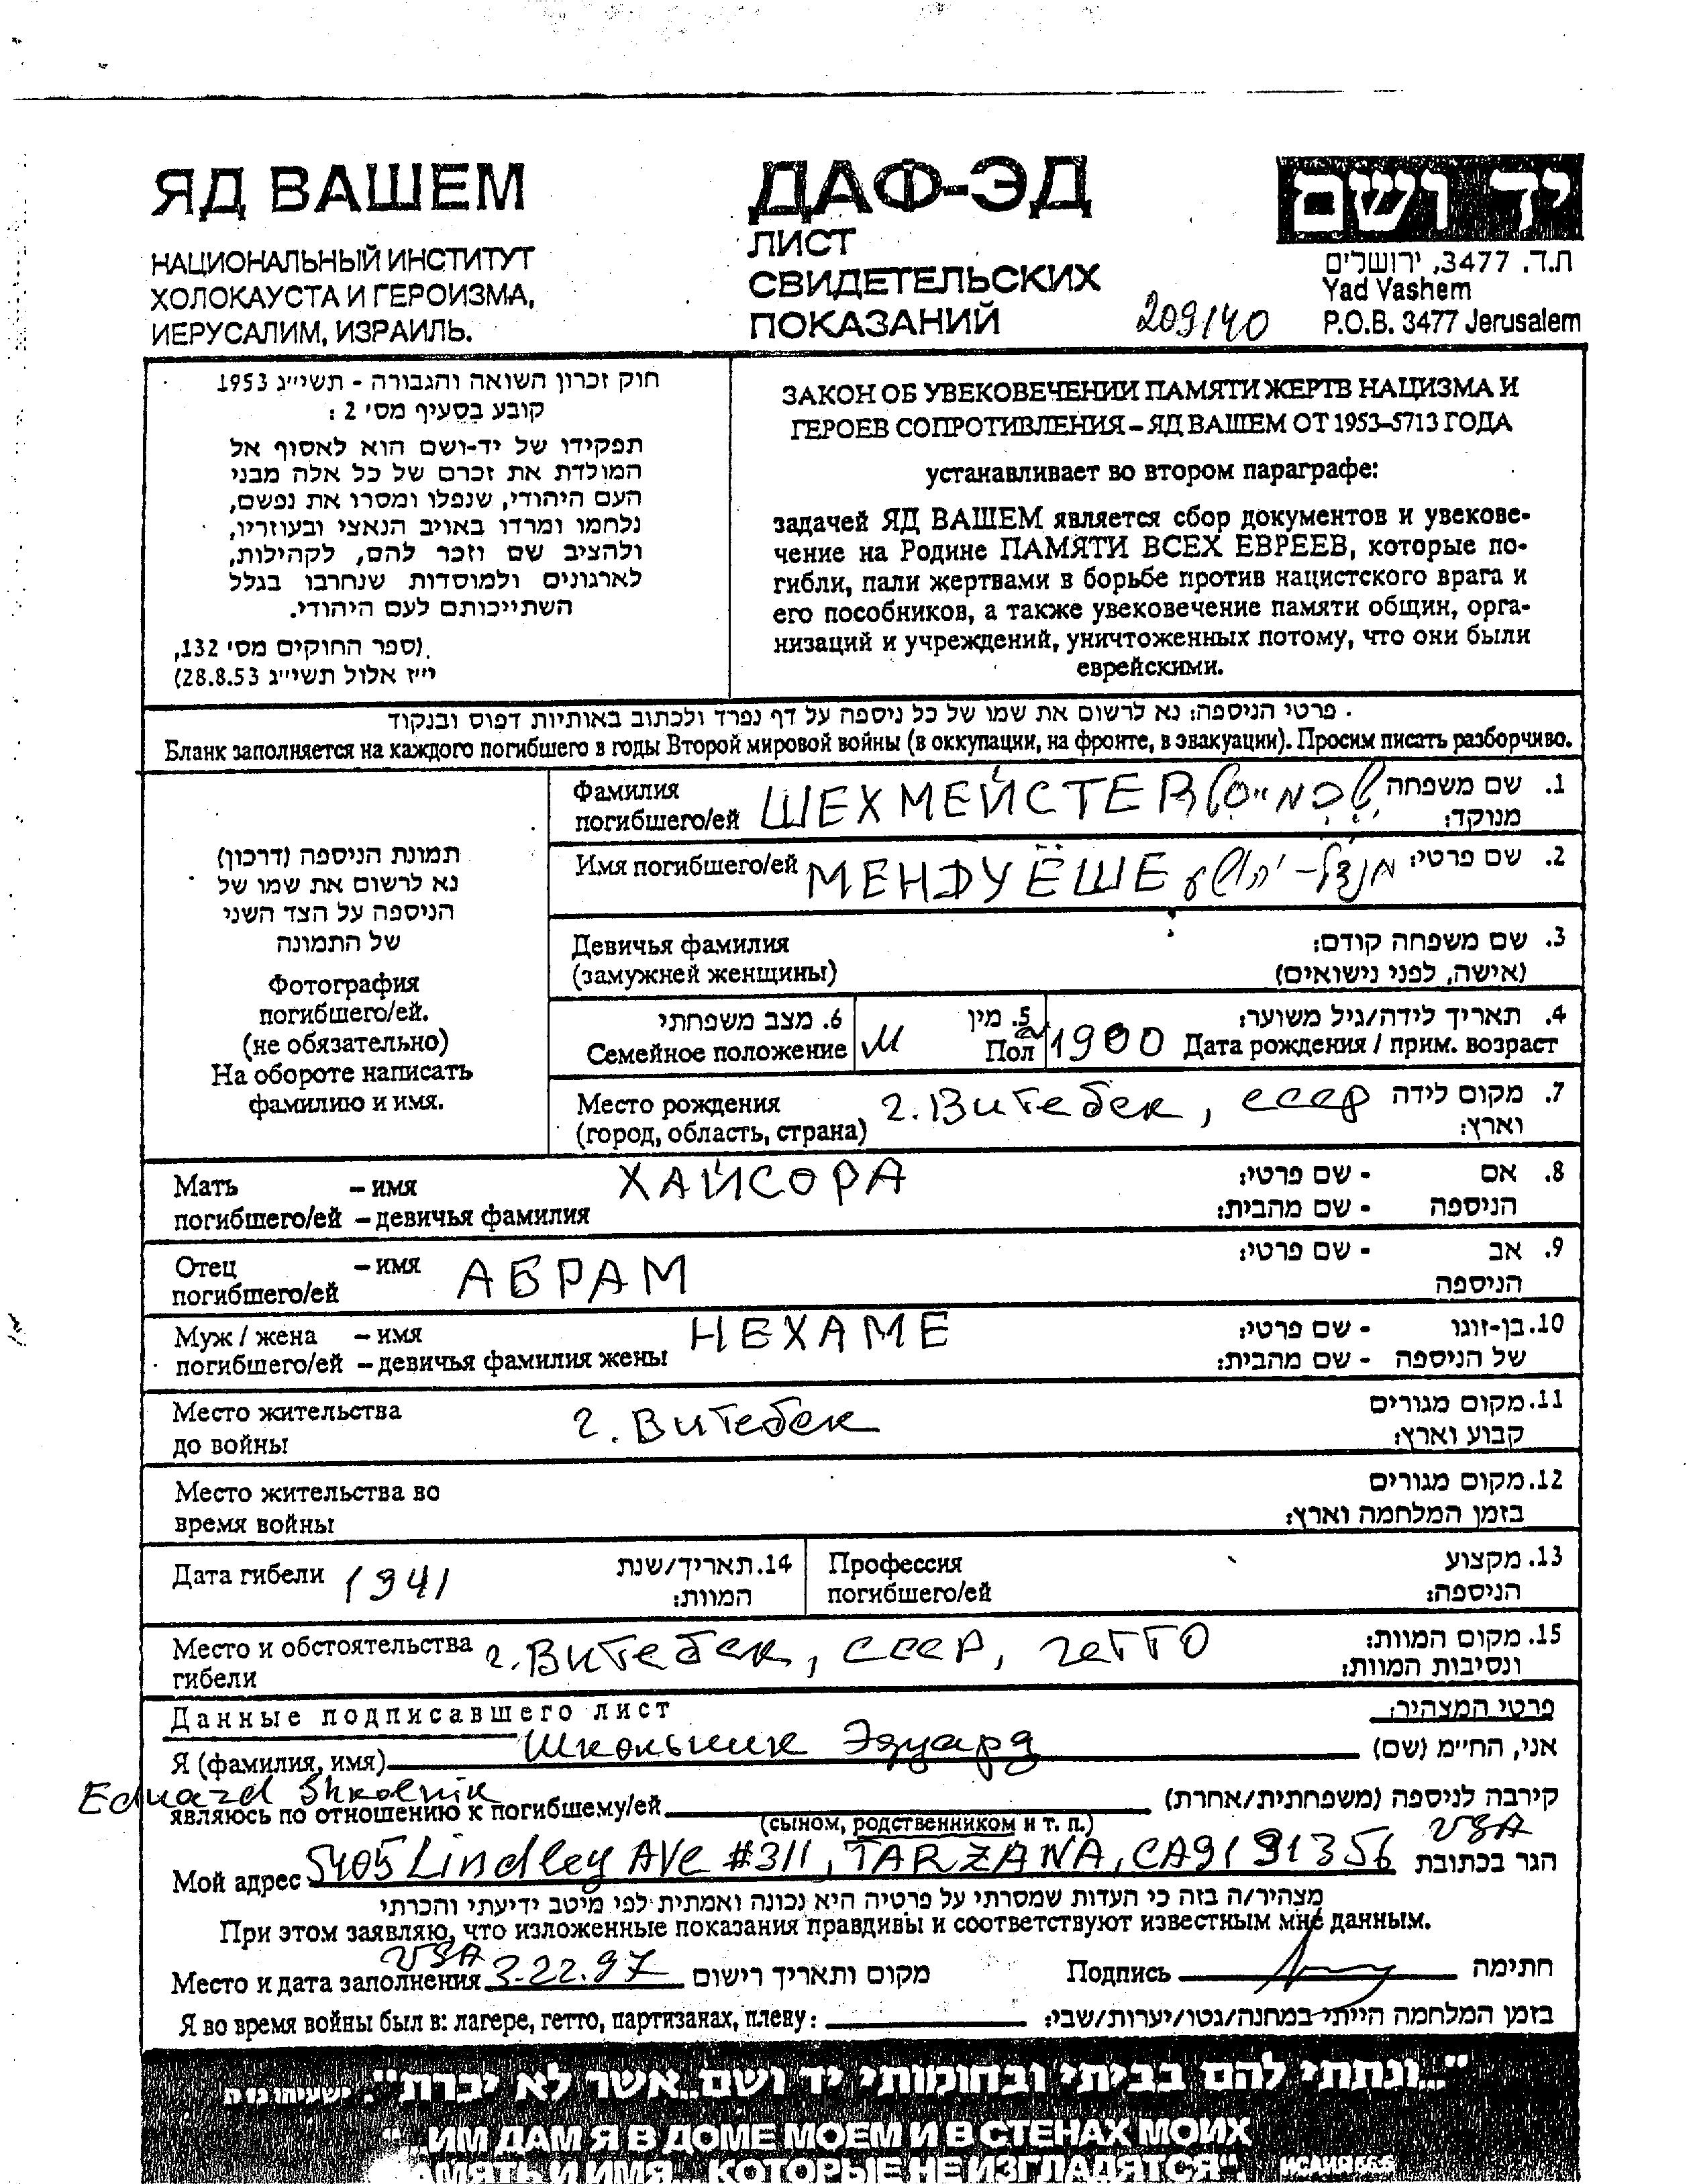 ЯД ВАШЕМ
НАЦИОНАЛЬНЫЙ ИНСТИТУТ
ХОЛОКАУСТА И ГЕРОИЗМА,
ИЕРУСАЛИМ, ИЗРАИЛЬ.
ДАФ-ЭД
ЛИСТ
СВИДЕТЕЛЬСКИХ
ПОКАЗАНИЙ
209140
יד ושם
ת.ד. 3477, ירושלים
Yad Vashem
P.O.B. 3477 Jerusalem
חוק זכרון השואה והגבורה - תשי״ג 1953
קובע בסעיף מס׳ 2 :
תפקידו של יד-ושם הוא לאסוף אל
המולדת את זכרם של כל אלה מבני
העם היהודי, שנפלו ומסרו את נפשם,
נלחמו ומרדו באויב הנאצי ובעוזריו,
ולהציב שם וזכר להם, לקהילות,
לארגונים ולמוסדות שנחרבו בגלל
השתייכותם לעם היהודי.
(ספר החוקים מס׳ 132,
י״ז אלול תשי״ג 28.8.53)
ЗАКОН ОБ УВЕКОВЕЧЕНИИ ПАМЯТИ ЖЕРТВ НАЦИЗМА И
ГЕРОЕВ СОПРОТИВЛЕНИЯ – ЯД ВАШЕМ ОТ 1953–5713 ГОДА
устанавливает во втором параграфе:
задачей ЯД ВАШЕМ является сбор документов и увекове-
чение на Родине ПАМЯТИ ВСЕХ ЕВРЕЕВ, которые по-
гибли, пали жертвами в борьбе против нацистского врага и
его пособников, а также увековечение памяти общин, орга-
низаций и учреждений, уничтоженных потому, что они были
еврейскими.
פרטי הניספה: נא לרשום את שמו של כל ניספה על דף נפרד ולכתוב באותיות דפוס ובנקוד
Бланк заполняется на каждого погибшего в годы Второй мировой войны (в оккупации, на фронте, в эвакуации). Просим писать разборчиво.
תמונת הניספה (דרכון)
נא לרשום את שמו של
הניספה על הצד השני
של התמונה
Фотография
погибшего/ей.
(не обязательно)
На обороте написать
фамилию и имя.
Фамилия
погибшего/ей ШЕХМЕЙСТЕР
1. שם משפחה
מנוקד:
Имя погибшего/ей МЕНДУ ЁШЕ מנדל-יהושע 2. שם פרטי:
Девичья фамилия
(замужней женщины)
3. שם משפחה קודם:
(אישה, לפני נישואים)
6. מצב משפחתי
Семейное положение
5. מין
М Пол
4. תאריך לידה/גיל משוער:
~1900 Дата рождения / прим. возраст
Место рождения
(город, область, страна) г. Витебск, СССР
7. מקום לידה
וארץ:
Мать – имя ХАЙСОРА
погибшего/ей – девичья фамилия
8. אם - שם פרטי:
הניספה - שם מהבית:
Отец – имя АБРАМ
погибшего/ей
9. אב - שם פרטי:
הניספה
Муж / жена – имя НЕХАМЕ
погибшего/ей – девичья фамилия жены
10. בן-זוגו - שם פרטי:
של הניספה - שם מהבית:
Место жительства
до войны г. Витебск
11. מקום מגורים
קבוע וארץ:
Место жительства во
время войны
12. מקום מגורים
בזמן המלחמה וארץ:
Дата гибели 1941
14. תאריך/שנת
המוות:
Профессия
погибшего/ей
13. מקצוע
הניספה:
Место и обстоятельства
гибели г. Витебск, СССР, гетто
15. מקום המוות:
ונסיבות המוות:
Данные подписавшего лист פרטי המצהיר:
Я (фамилия, имя) Школьник Эдуард אני, החי״מ (שם)
Eduard Shkolnik
являюсь по отношению к погибшему/ей קירבה לניספה (משפחתית/אחרת)
(сыном, родственником и т. п.)
USA
Мой адрес 5405 Lindley AVe #311, TARZANA, CA91 91356 הגר בכתובת
מצהיר/ה בזה כי העדות שמסרתי על פרטיה היא נכונה ואמתית לפי מיטב ידיעתי והכרתי
При этом заявляю, что изложенные показания правдивы и соответствуют известным мне данным.
USA
Место и дата заполнения 3-22.97 מקום ותאריך רישום Подпись חתימה
Я во время войны был в: лагере, гетто, партизанах, плену: בזמן המלחמה הייתי במחנה/גטו/יערות/שבי:
"...ונתתי להם בביתי ובחומותי יד ושם...אשר לא יכרת". ישעיהו נו ה
"...ИМ ДАМ Я В ДОМЕ МОЕМ И В СТЕНАХ МОИХ
ПАМЯТЬ И ИМЯ... КОТОРЫЕ НЕ ИЗГЛАДЯТСЯ". ИСАИЯ 56:5